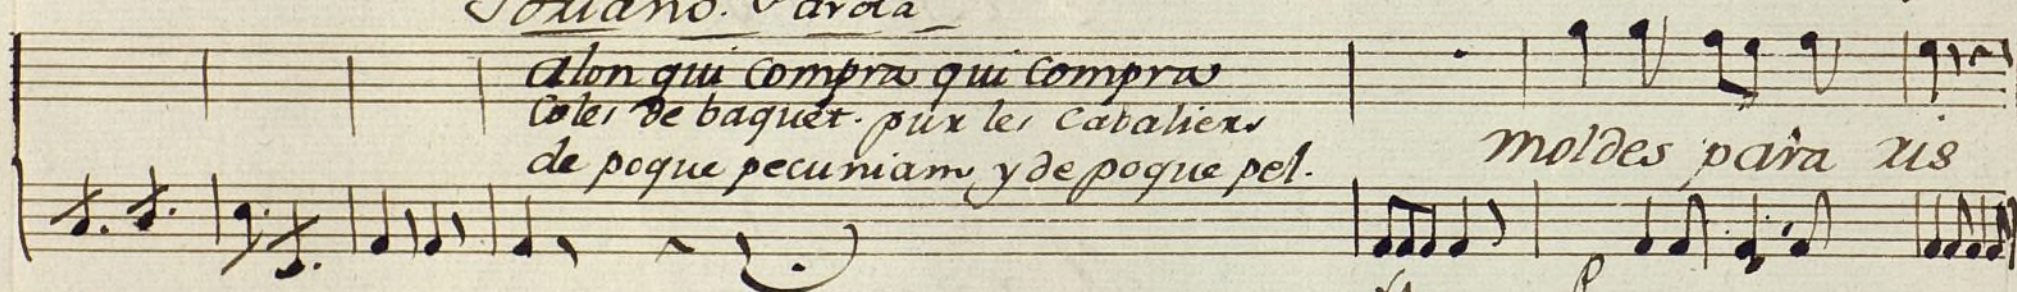 Soriano. Parola
Alon qui Compra qui Compra
Coles de baquet. pur les Cabaliers
de poque pecuniam y de poque pel.
moldes para ris
p